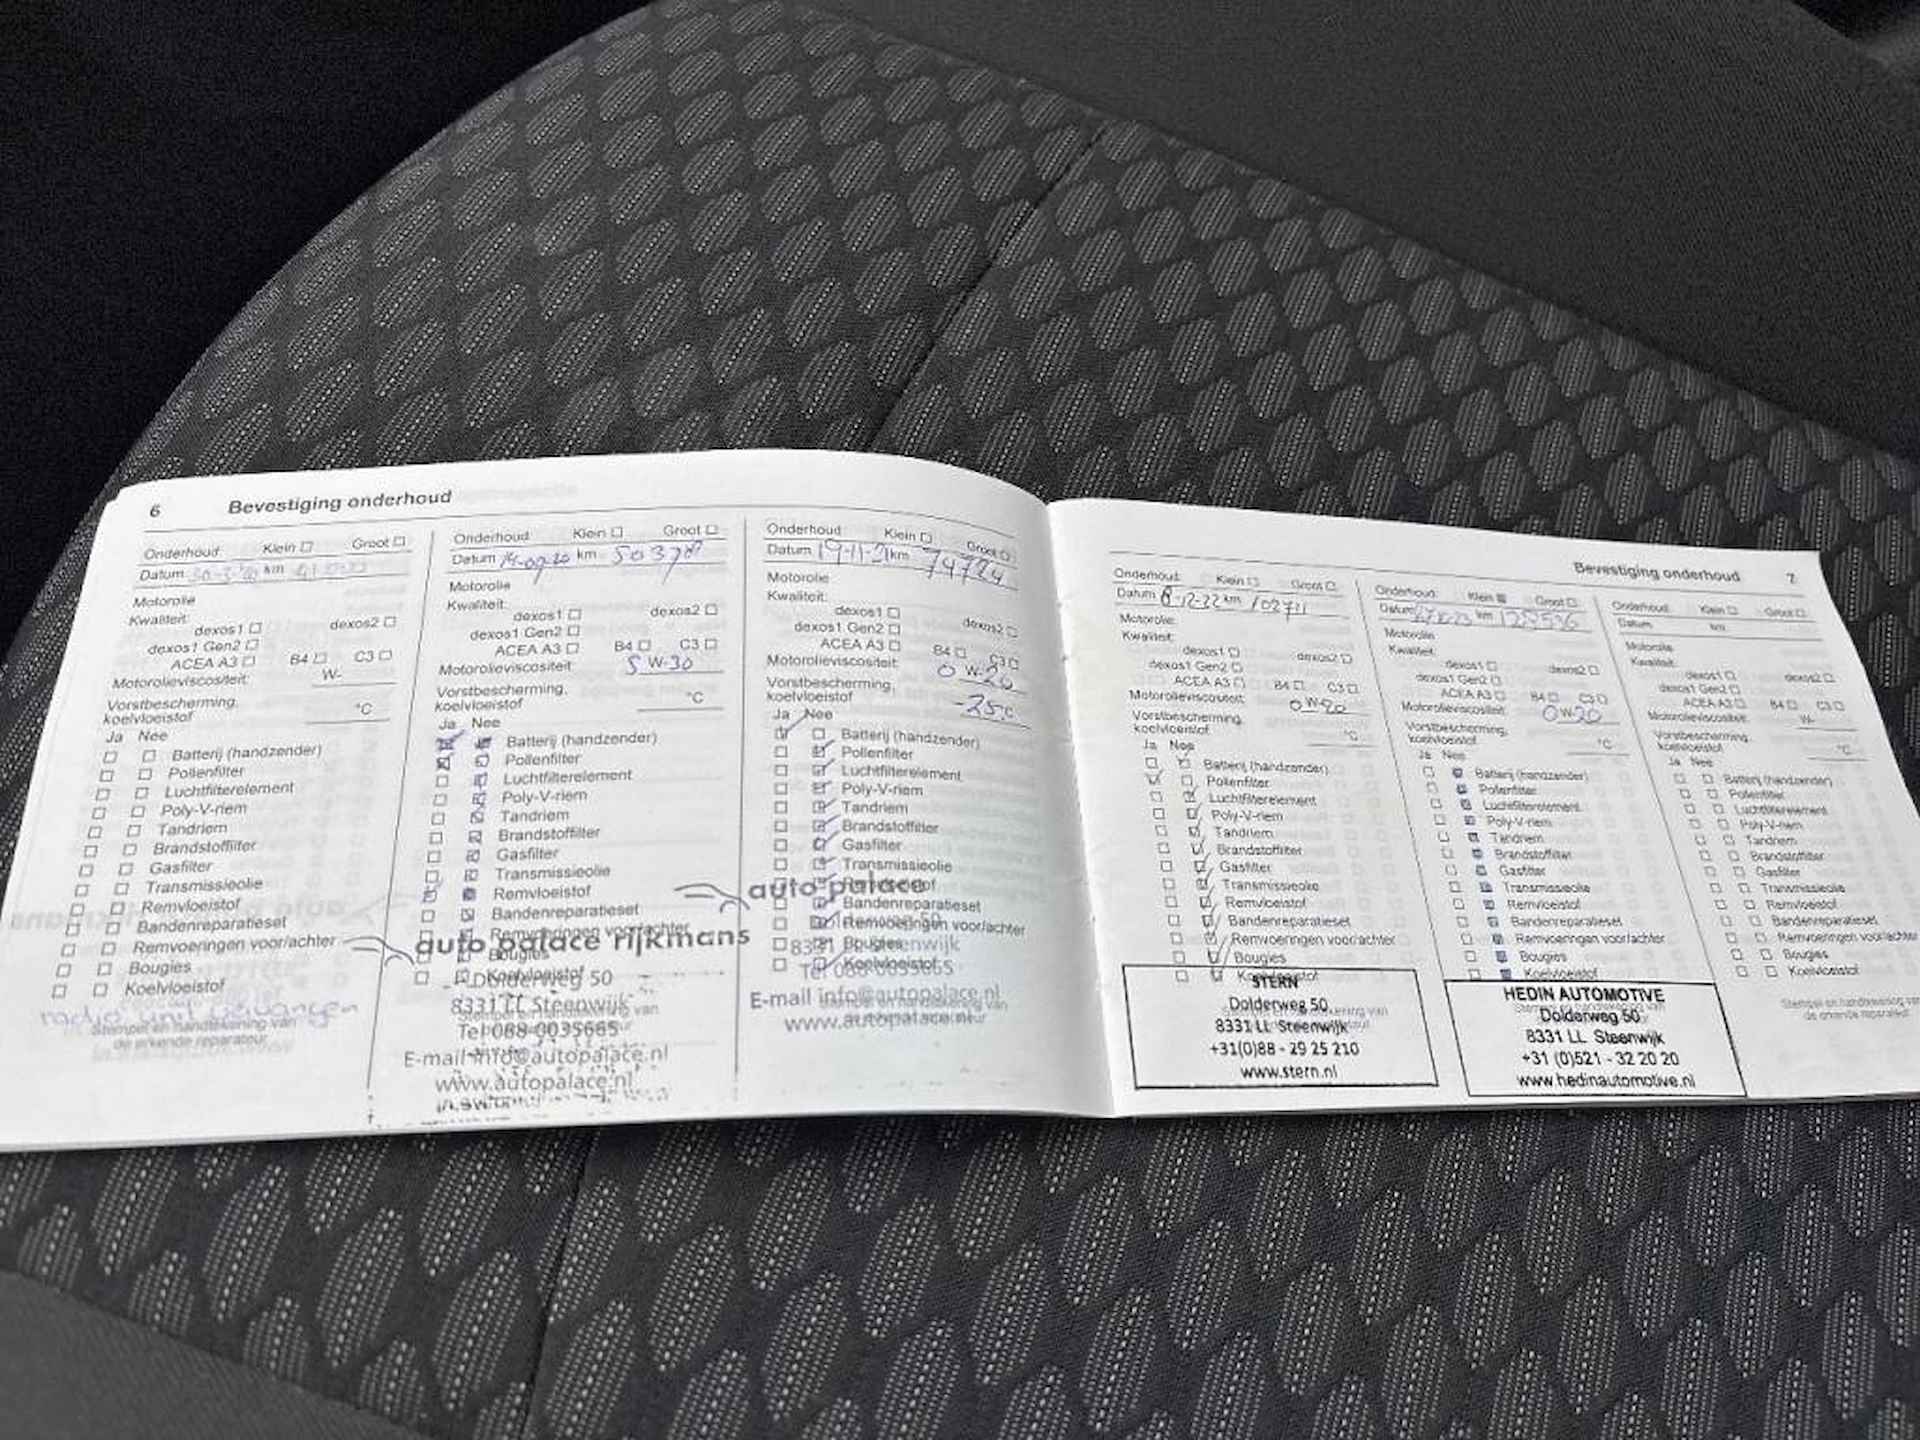 6 Bevestiging onderhoud
Onderhoud: Klein Groot
Datum 30-3-20 km
Motorolie
Kwaliteit:
dexos1 dexos2
dexos1 Gen2
ACEA A3 B4 C3
Motorolieviscositeit: W-
Vorstbescherming.
koelvloeistof °C
Ja Nee
Batterij (handzender)
Pollenfilter
Luchtfilterelement
Poly-V-riem
Tandriem
Brandstoffilter
Gasfilter
Transmissieolie
Remvloeistof
Bandenreparatieset
Remvoeringen voor/achter
Bougies
Koelvloeistof
radio unit vervangen
Stempel en handtekening van
de erkende reparateur
Onderhoud: Klein Groot
Datum 14-09-20 km 50378
Motorolie
Kwaliteit:
dexos1 dexos2
dexos1 Gen2
ACEA A3 B4 C3
Motorolieviscositeit 5 W-30
Vorstbescherming.
koelvloeistof °C
Ja Nee
Batterij (handzender)
Pollenfilter
Luchtfilterelement
Poly-V-riem
Tandriem
Brandstoffilter
Gasfilter
Transmissieolie
Remvloeistof
Bandenreparatieset
Remvoeringen voor/achter
auto palace rijkmans
Bougies
Koelvloeistof
Dolderweg 50
8331 LL Steenwijk
Tel 088-0035665
E-mail info@autopalace.nl
www.autopalace.nl
Onderhoud: Klein Groot
Datum 19-11-21 km 74724
Motorolie
Kwaliteit:
dexos1 dexos2
dexos1 Gen2
ACEA A3 B4 C3
Motorolieviscositeit: 0 W-20
Vorstbescherming.
koelvloeistof -25 °C
Ja Nee
Batterij (handzender)
Pollenfilter
Luchtfilterelement
Poly-V-riem
Tandriem
Brandstoffilter
Gasfilter
Transmissieolie
auto palace
Remvloeistof
Bandenreparatieset
Remvoeringen voor/achter
Bougies
Koelvloeistof
Tel 088-0035665
E-mail info@autopalace.nl
www.autopalace.nl
Bevestiging onderhoud 7
Onderhoud: Klein Groot
Datum 8-12-22 km 102711
Motorolie:
Kwaliteit:
dexos1 dexos2
dexos1 Gen2
ACEA A3 B4 C3
Motorolieviscositeit: 0 W-20
Vorstbescherming.
koelvloeistof °C
Ja Nee
Batterij (handzender)
Pollenfilter
Luchtfilterelement
Poly-V-riem
Tandriem
Brandstoffilter
Gasfilter
Transmissieolie
Remvloeistof
Bandenreparatieset
Remvoeringen voor/achter
Bougies
Koelvloeistof
STERN
Dolderweg 50
8331 LL Steenwijk
+31(0)88 - 29 25 210
www.stern.nl
Onderhoud: Klein Groot
Datum km 128536
Motorolie
Kwaliteit:
dexos1 dexos2
dexos1 Gen2
ACEA A3 B4 C3
Motorolieviscositeit: 0 W-20
Vorstbescherming.
koelvloeistof °C
Ja Nee
Batterij (handzender)
Pollenfilter
Luchtfilterelement
Poly-V-riem
Tandriem
Brandstoffilter
Gasfilter
Transmissieolie
Remvloeistof
Bandenreparatieset
Remvoeringen voor/achter
Bougies
Koelvloeistof
HEDIN AUTOMOTIVE
Dolderweg 50
8331 LL Steenwijk
+31 (0)521 - 32 20 20
www.hedinautomotive.nl
Onderhoud: Klein Groot
Datum km
Motorolie
Kwaliteit:
dexos1 dexos2
dexos1 Gen2
ACEA A3 B4 C3
Motorolieviscositeit: W-
Vorstbescherming.
koelvloeistof °C
Ja Nee
Batterij (handzender)
Pollenfilter
Luchtfilterelement
Poly-V-riem
Tandriem
Brandstoffilter
Gasfilter
Transmissieolie
Remvloeistof
Bandenreparatieset
Remvoeringen voor/achter
Bougies
Koelvloeistof
Stempel en handtekening van
de erkende reparateur